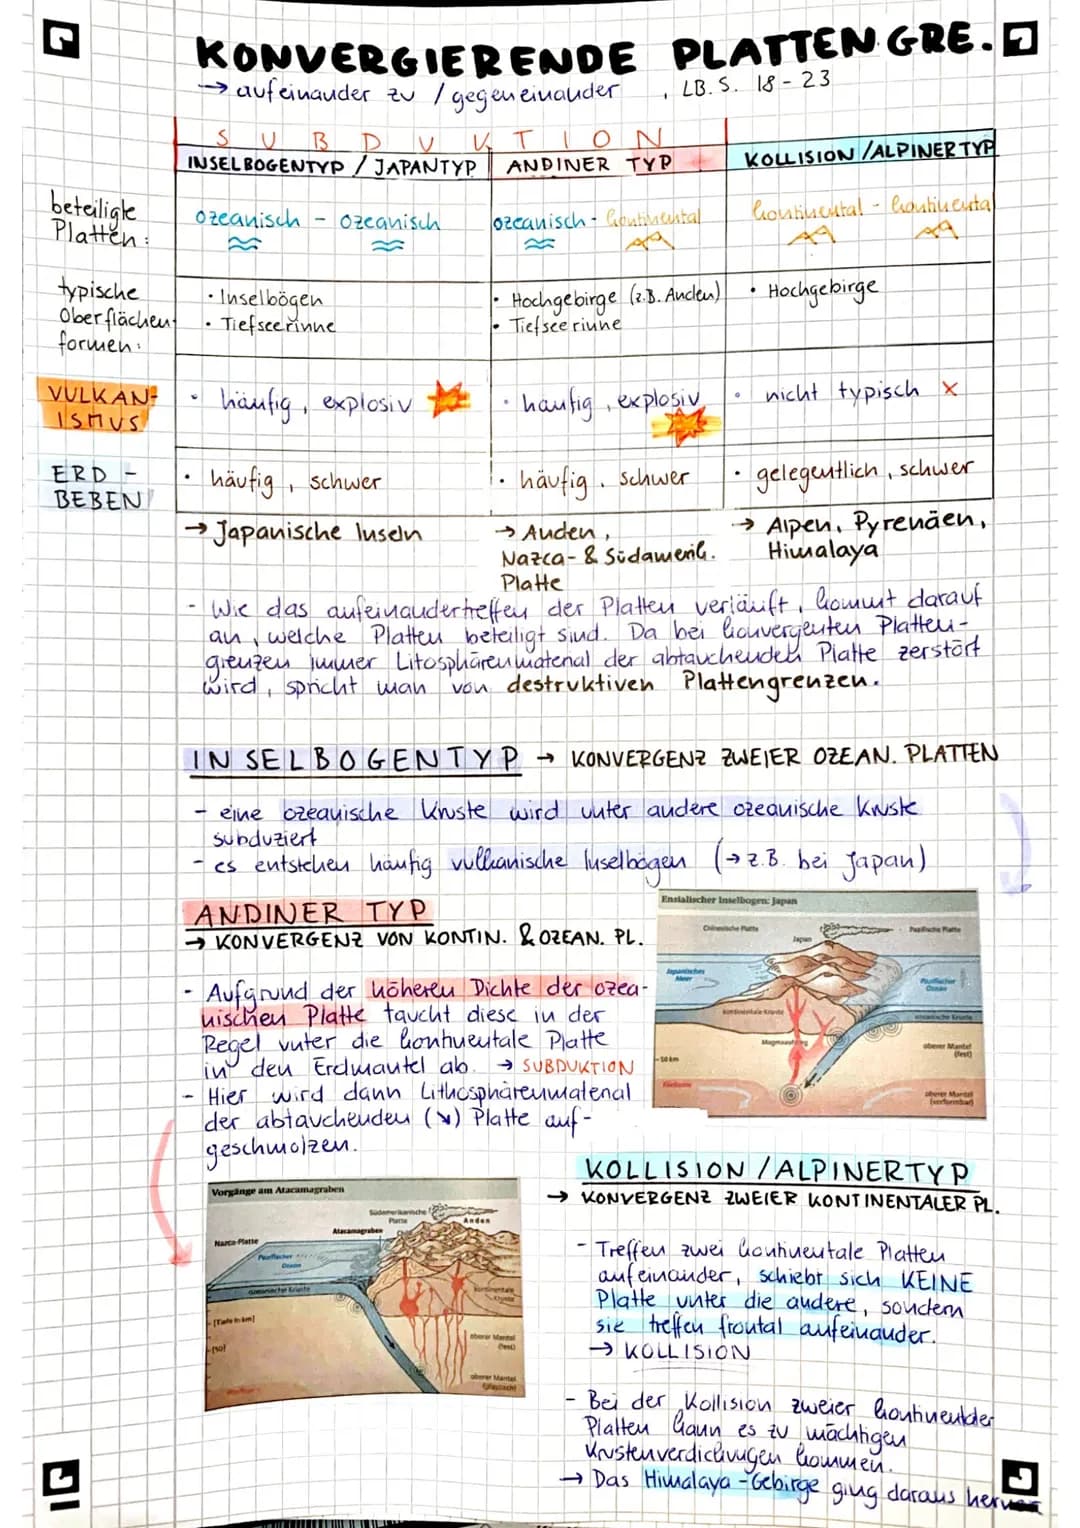 KONVERGIERENDE PLATTENGRE.
→ aufeinander zu / gegeneinander , LB. S. 18 - 23
SUBDUKTION
INSELBOGENTYP / JAPANTYP ANDINER TYP KOLLISION / ALPINER TYP
beteiligte Platten:
ozeanisch - ozeanisch
ozeanisch - kontinental
kontinental - kontinental
typische Oberflächenformen:
• Inselbögen
• Tiefseerinne
• Hochgebirge (z.B. Anden)
• Tiefseerinne
• Hochgebirge
VULKAN-
ISMUS
• häufig, explosiv
• häufig, explosiv
• nicht typisch X
ERD-
BEBEN
• häufig, schwer
• häufig, schwer
• gelegentlich, schwer
→ Japanische Inseln
→ Anden,
Nazca- & Südamerik.
Platte
→ Alpen, Pyrenäen,
Himalaya
- Wie das aufeinandertreffen der Platten verläuft, kommt darauf
an, welche Platten beteiligt sind. Da bei konvergenten Platten-
grenzen immer Litosphärenmaterial der abtauchenden Platte zerstört
wird, spricht man von destruktiven Plattengrenzen.
INSELBOGENTYP → KONVERGENZ ZWEIER OZEAN. PLATTEN
- eine ozeanische Kruste wird unter andere ozeanische Kruste
subduziert
- es entstehen häufig vulkanische Inselbögen (→ z.B. bei Japan)
ANDINER TYP
→ KONVERGENZ VON KONTIN. & OZEAN. PL.
- Aufgrund der höheren Dichte der ozea-
nischen Platte taucht diese in der
Regel unter die kontinentale Platte
in den Erdmantel ab. → SUBDUKTION
- Hier wird dann Lithosphärenmaterial
der abtauchenden (↘) Platte auf-
geschmolzen.
Ensialischer Inselbogen: Japan
Chinesische Platte
Japan
Pazifische Platte
Japanisches
Meer
Pazifischer
Ozean
kontinentale Kruste
ozeanische Kruste
Magmaaufstieg
oberer Mantel
(fest)
-50 km
oberer Mantel
(verformbar)
Vorgänge am Atacamagraben
Südamerikanische
Platte
Anden
Atacamagraben
Nazca-Platte
Pazifischer
Ozean
ozeanische Kruste
kontinentale
Kruste
[Tiefe in km]
oberer Mantel
(fest)
oberer Mantel
(plastisch)
KOLLISION / ALPINER TYP
→ KONVERGENZ ZWEIER KONTINENTALER PL.
- Treffen zwei kontinentale Platten
aufeinander, schiebt sich KEINE
Platte unter die andere, sondern
sie treffen frontal aufeinander.
→ KOLLISION
- Bei der Kollision zweier kontinentaler
Platten kann es zu mächtigen
Krustenverdickungen kommen.
→ Das Himalaya-Gebirge ging daraus hervor